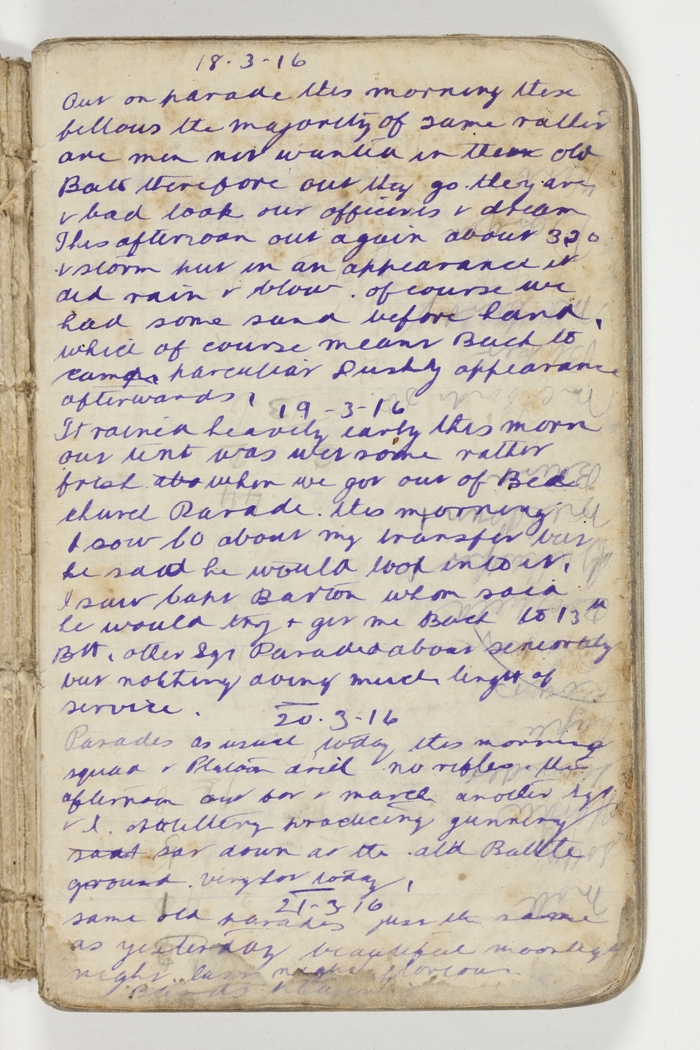 18-3-16
Out on parade this morning these
fellows the majority of same rather
are men not wanted in their old
Batt therefore out they go. they are
& bad look our officers & dream
This afternoon out again about 330
& storm put in an appearance it
did rain & blow. of course we
had some sand before hand,
which of course means Back to
camp, parculiar Dushy appearance
afterwards,
19-3-16
It rained heavily early this morn
our tent was wet some rather
fresh when we got out of Bed
church Parade. this morning
I saw CO about my transfer but
he said he would look into it.
I saw Capt Barton whom said
he would try & get me Back to 13th
Btt, other Sgt Paraded about seniority
but nothing doing much length of
service.
20-3-16
Parades as usual today this morning
squad & Platoon drill no rifles. this
afternoon out for & march another Sgt
& I. Artillery practicing gunning
sat down at the old Battle
ground. very hot today,
21-3-16
same old parades just the same
as yesterday beautiful moonlight
night last night glorious